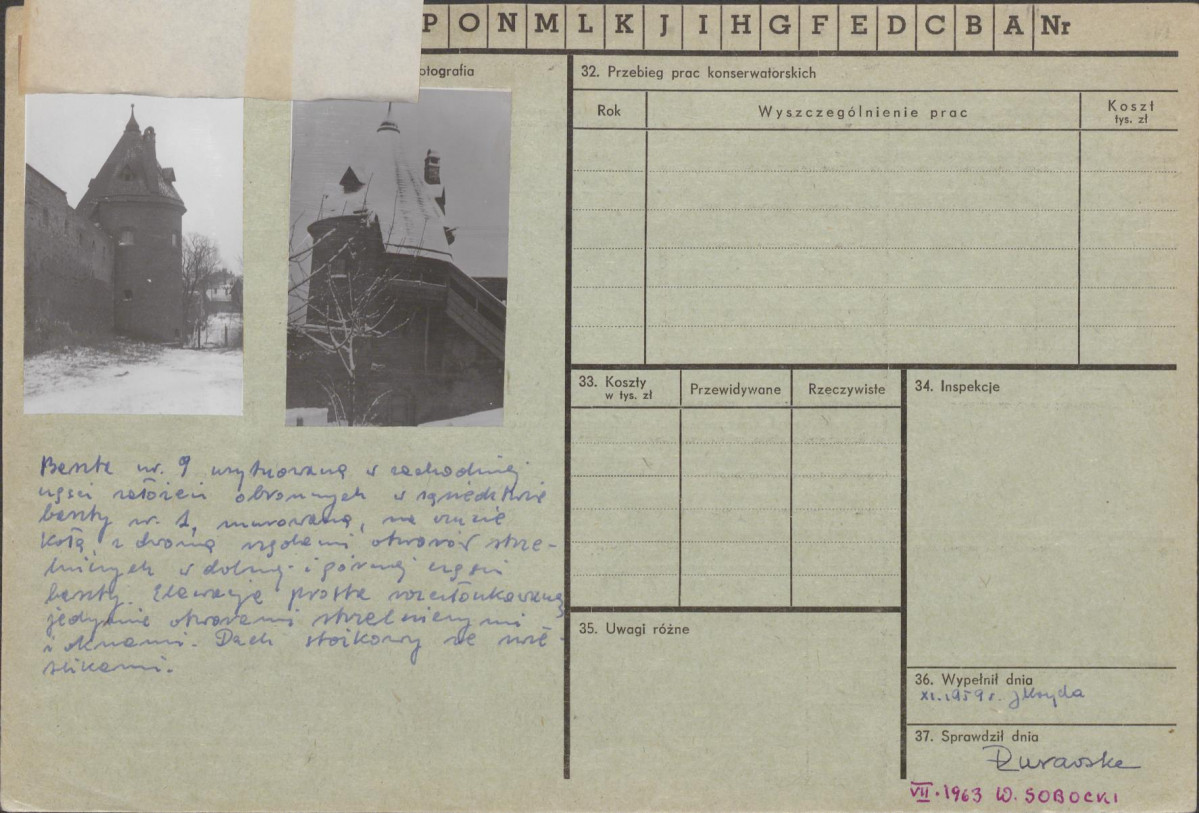 P O N M L K J I H G F E D C B A Nr
otografia
32. Przebieg prac konserwatorskich
Rok
Wyszczególnienie prac
Koszt
tys. zł
33. Koszty
w tys. zł
Przewidywane
Rzeczywiste
34. Inspekcje
Baszta nr. 9 usytuowana w zachodniej
części założeń obronnych w sąsiedztwie
baszty nr. 1, murowana, na rzucie
koła, z dwoma rzędami otworów strze-
lniczych w dolnej i górnej części
baszty. Elewacja prosta rozczłonkowana
jedynie otworami strzelniczymi
i oknami. Dach stożkowy ze
35. Uwagi różne
36. Wypełnił dnia
XI.1959 r.
37. Sprawdził dnia
VII.1963 W. SOBOCKI